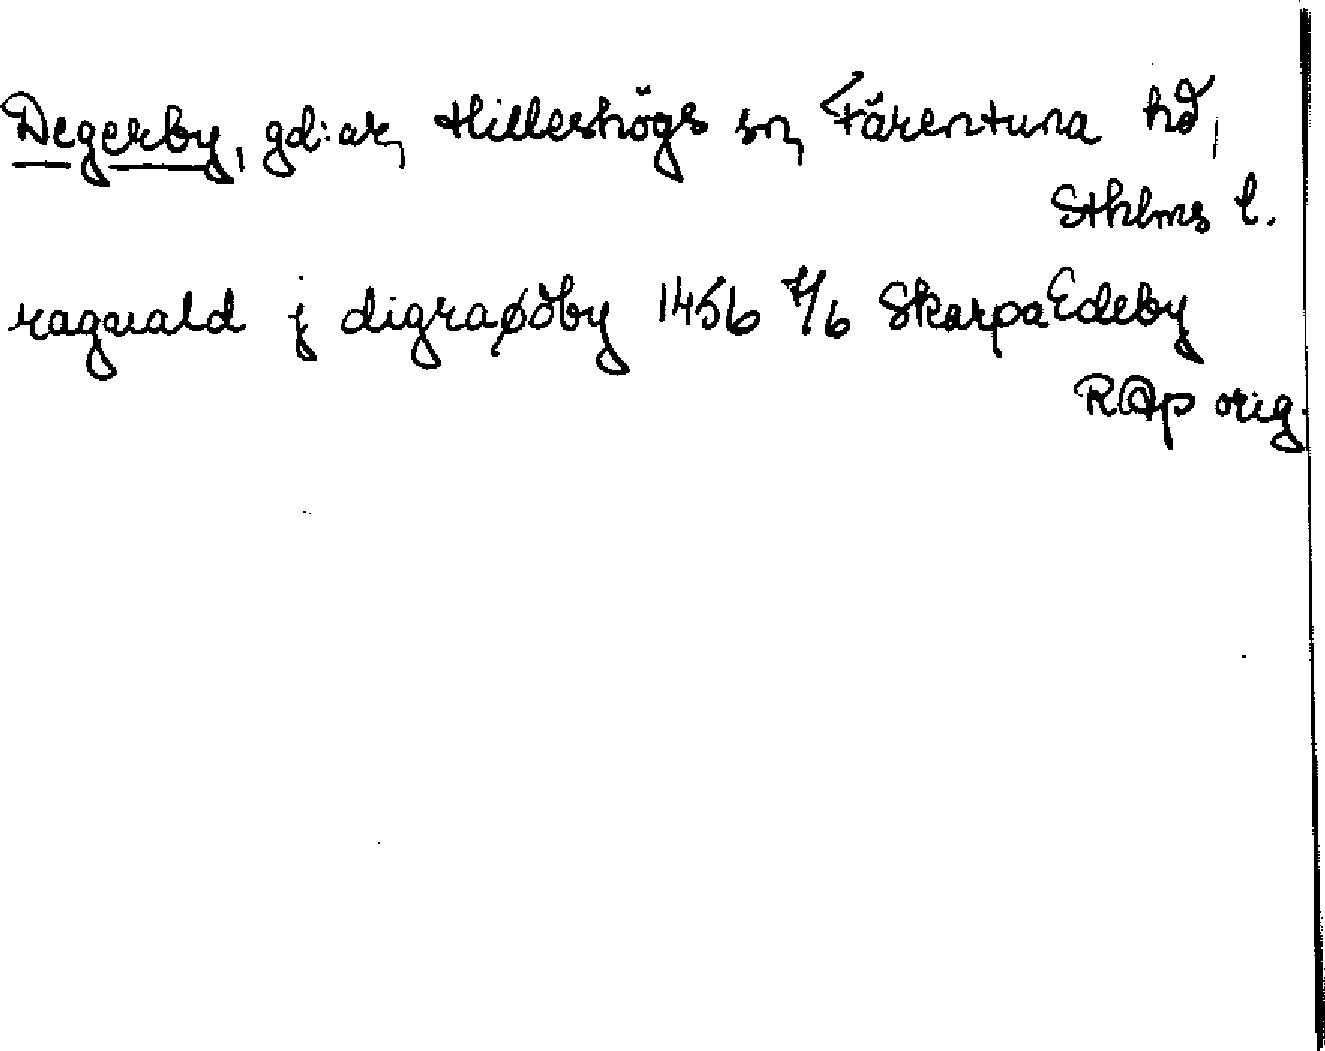 Degerby, gd:ar, Hilleshögs sn, Färentuna hd,
Sthlms l.
raguald j digraøöby 1456 7/6 SkarpaEdeby
RAp orig.